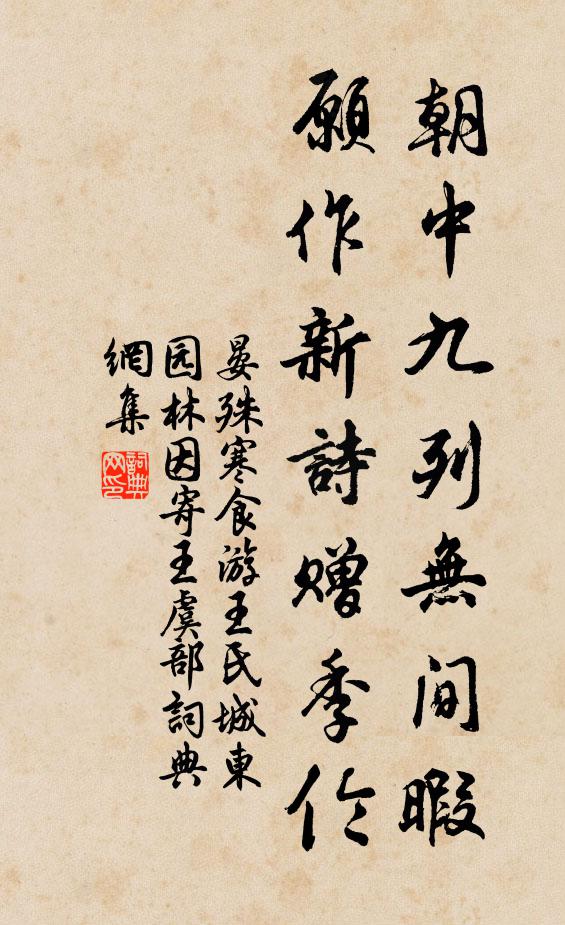 朝中九列無間暇
願作新詩贈季伦
晏殊寒食游王氏城東
园林因寄王虞部詞典
網集
詞典網印